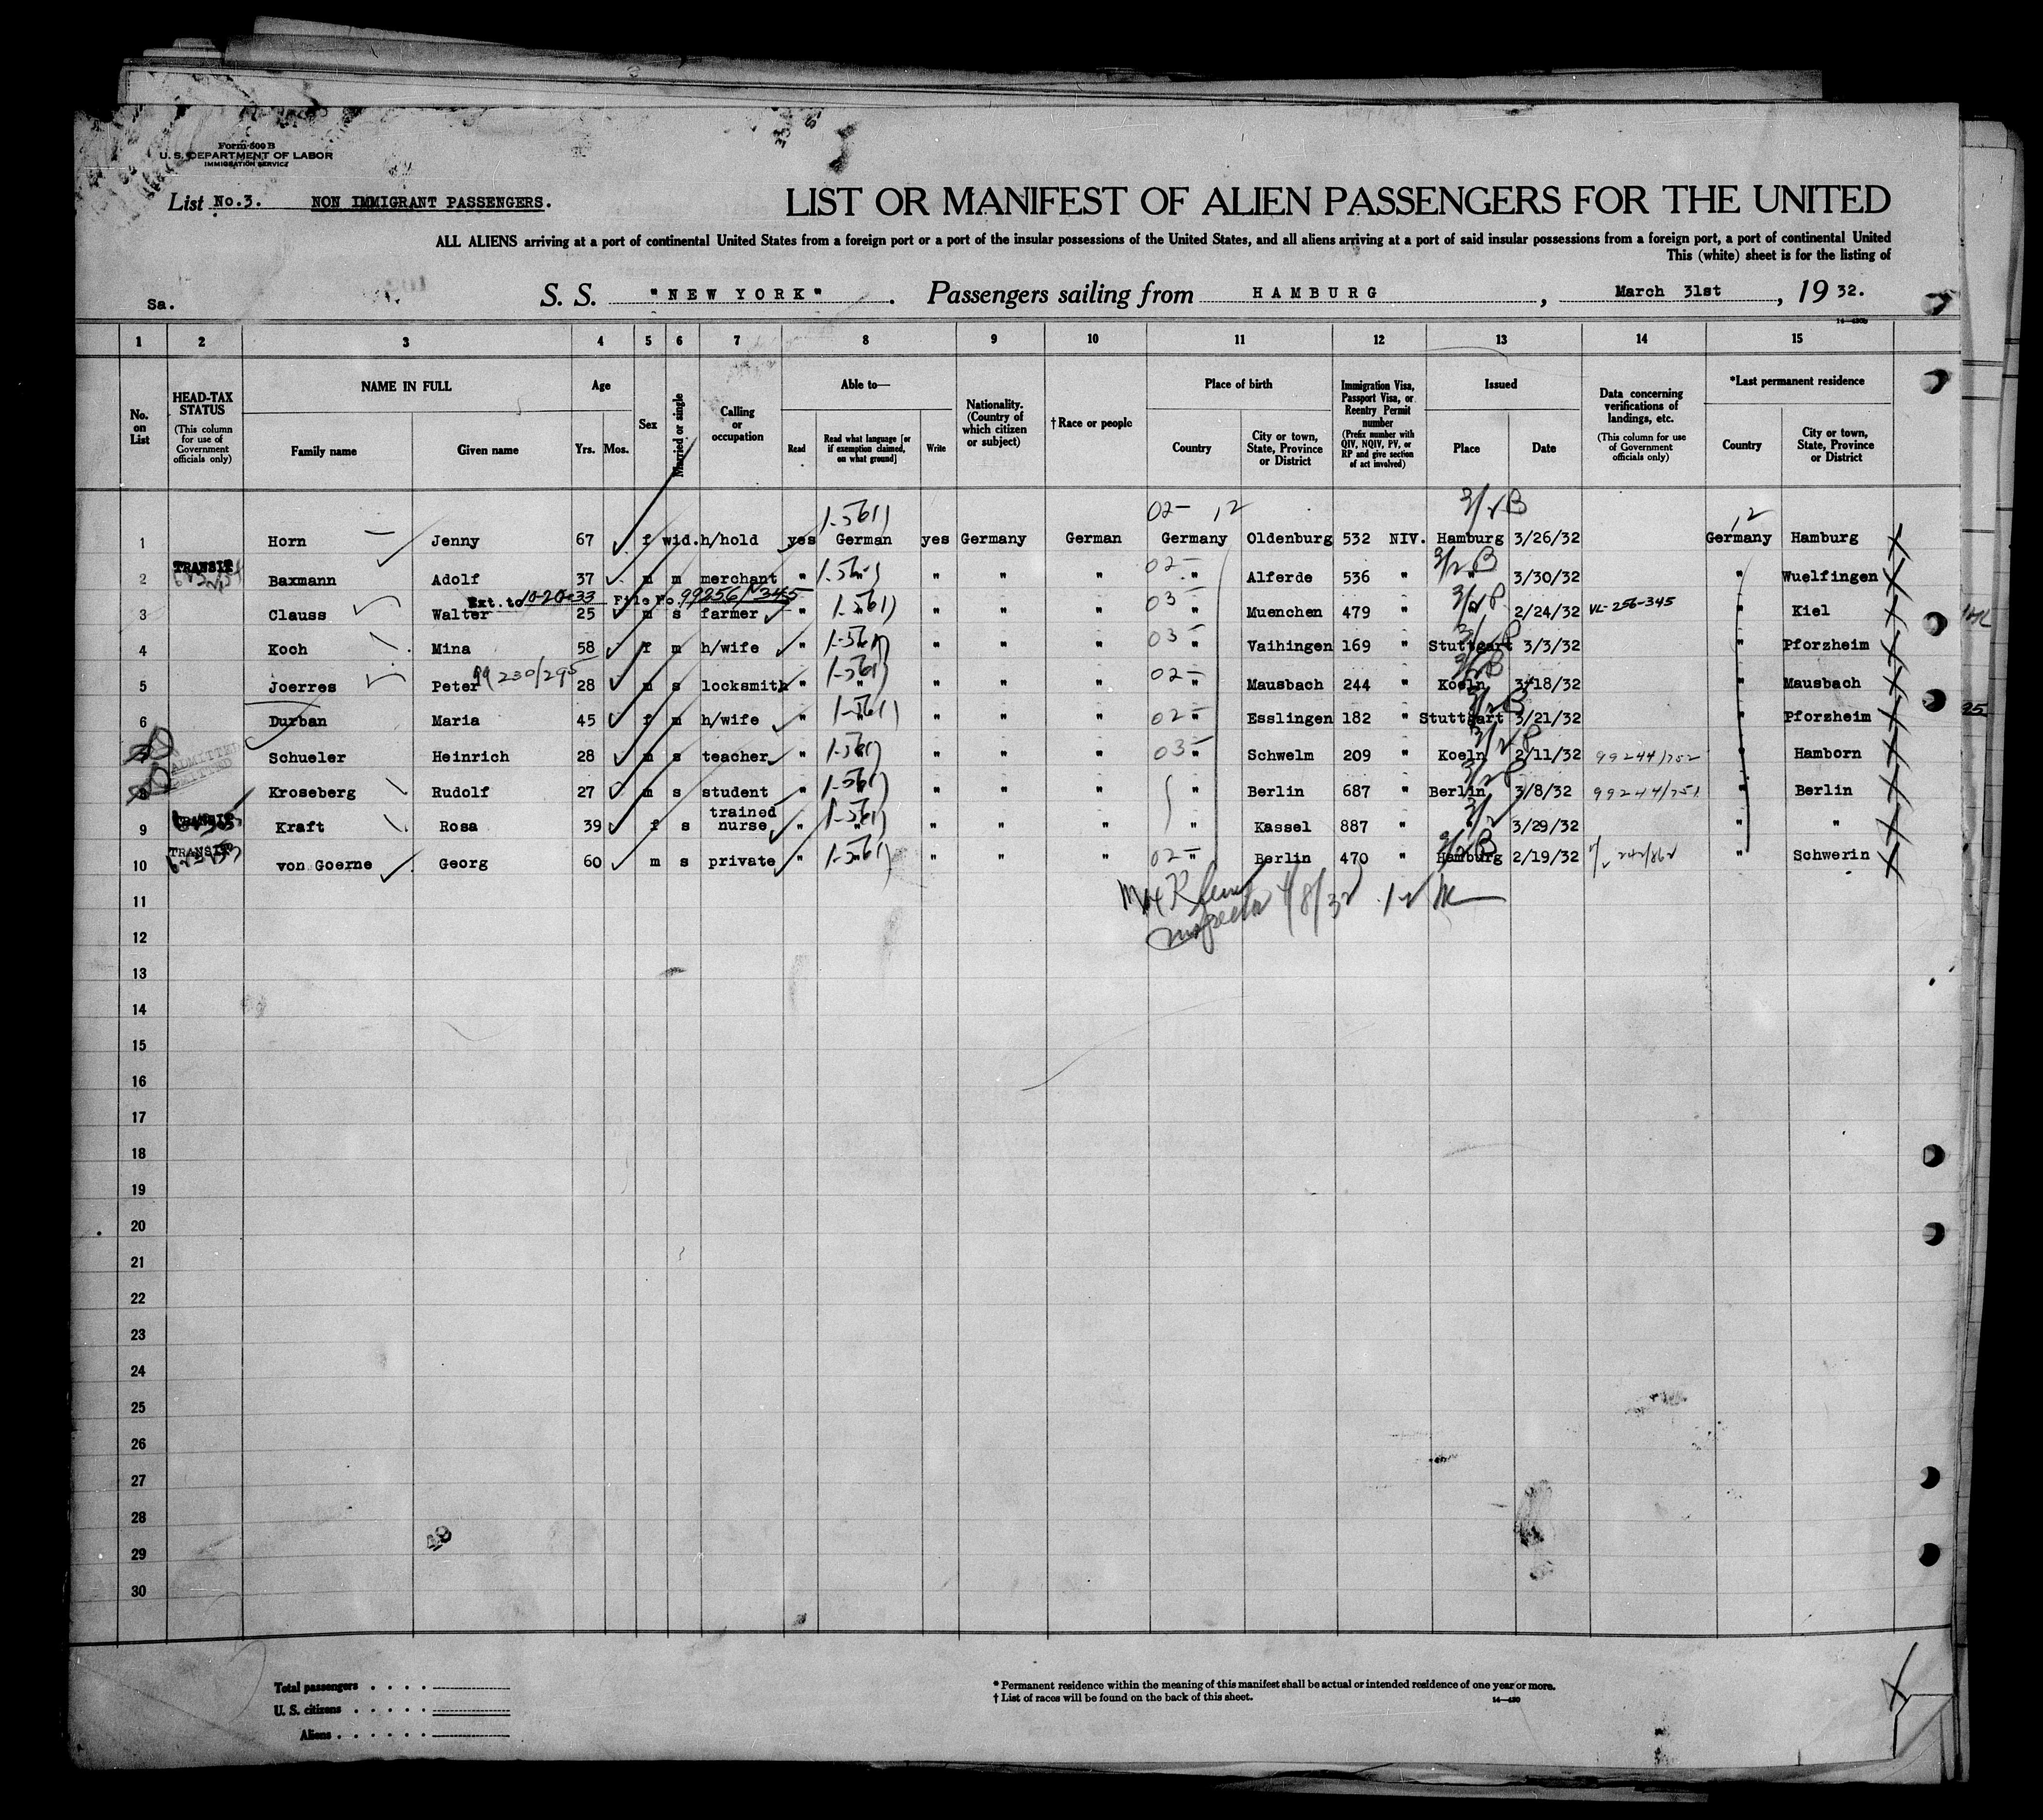 Form 500 B
U. S. DEPARTMENT OF LABOR
IMMIGRATION SERVICE
List No.3. NON IMMIGRANT PASSENGERS.
LIST OR MANIFEST OF ALIEN PASSENGERS FOR THE UNITED
ALL ALIENS arriving at a port of continental United States from a foreign port or a port of the insular possessions of the United States, and all aliens arriving at a port of said insular possessions from a foreign port, a port of continental United
This (white) sheet is for the listing of
Sa. S. S. "NEW YORK". Passengers sailing from HAMBURG, March 31st, 1932.
1 2 3 4 5 6 7 8 9 10 11 12 13 14 15
No. on List
HEAD-TAX STATUS
(This column for use of Government officials only)
NAME IN FULL
Family name Given name
Age
Yrs. Mos.
Sex
Married or single
Calling or occupation
Able to—
Read Read what language [or if exemption claimed, on what ground] Write
Nationality. (Country of which citizen or subject)
†Race or people
Place of birth
Country City or town, State, Province or District
Immigration Visa, Passport Visa, or Reentry Permit number
(Prefix number with QIV, NQIV, PV, or RP and give section of act involved)
Issued
Place Date
Data concerning verifications of landings, etc.
(This column for use of Government officials only)
*Last permanent residence
Country City or town, State, Province or District
1 Horn Jenny 67 f wid. h/hold yes German yes Germany German Germany Oldenburg 532 NIV. Hamburg 3/26/32 Germany Hamburg
TRANSIT
2 Baxmann Adolf 37 m m merchant " " " " " " Alferde 536 " " 3/30/32 " Wuelfingen
Ext. to 10-20-33 File No. 99256/345
3 Clauss Walter 25 m s farmer " " " " " " Muenchen 479 " " 2/24/32 VL-256-345 " Kiel
4 Koch Mina 58 f m h/wife " " " " " " Vaihingen 169 " Stuttgart 3/3/32 " Pforzheim
99230/295
5 Joerres Peter 28 m s locksmith " " " " " " Mausbach 244 " Koeln 3/18/32 " Mausbach
6 Durban Maria 45 f m h/wife " " " " " " Esslingen 182 " Stuttgart 3/21/32 " Pforzheim
ADMITTED
Schueler Heinrich 28 m s teacher " " " " " " Schwelm 209 " Koeln 2/11/32 99244/752 " Hamborn
ADMITTED
8 Kroseberg Rudolf 27 m s student " " " " " " Berlin 687 " Berlin 3/8/32 99244/751 " Berlin
TRANSIT
9 Kraft Rosa 39 f s trained nurse " " " " " " Kassel 887 " " 3/29/32 " "
TRANSIT
10 von Goerne Georg 60 m s private " " " " " " Berlin 470 " Hamburg 2/19/32 " Schwerin
11
Inspector 4/8/32
12
13
14
15
16
17
18
19
20
21
22
23
24
25
26
27
28
29
30
Total passengers
U. S. citizens
Aliens
* Permanent residence within the meaning of this manifest shall be actual or intended residence of one year or more.
† List of races will be found on the back of this sheet.
14—430